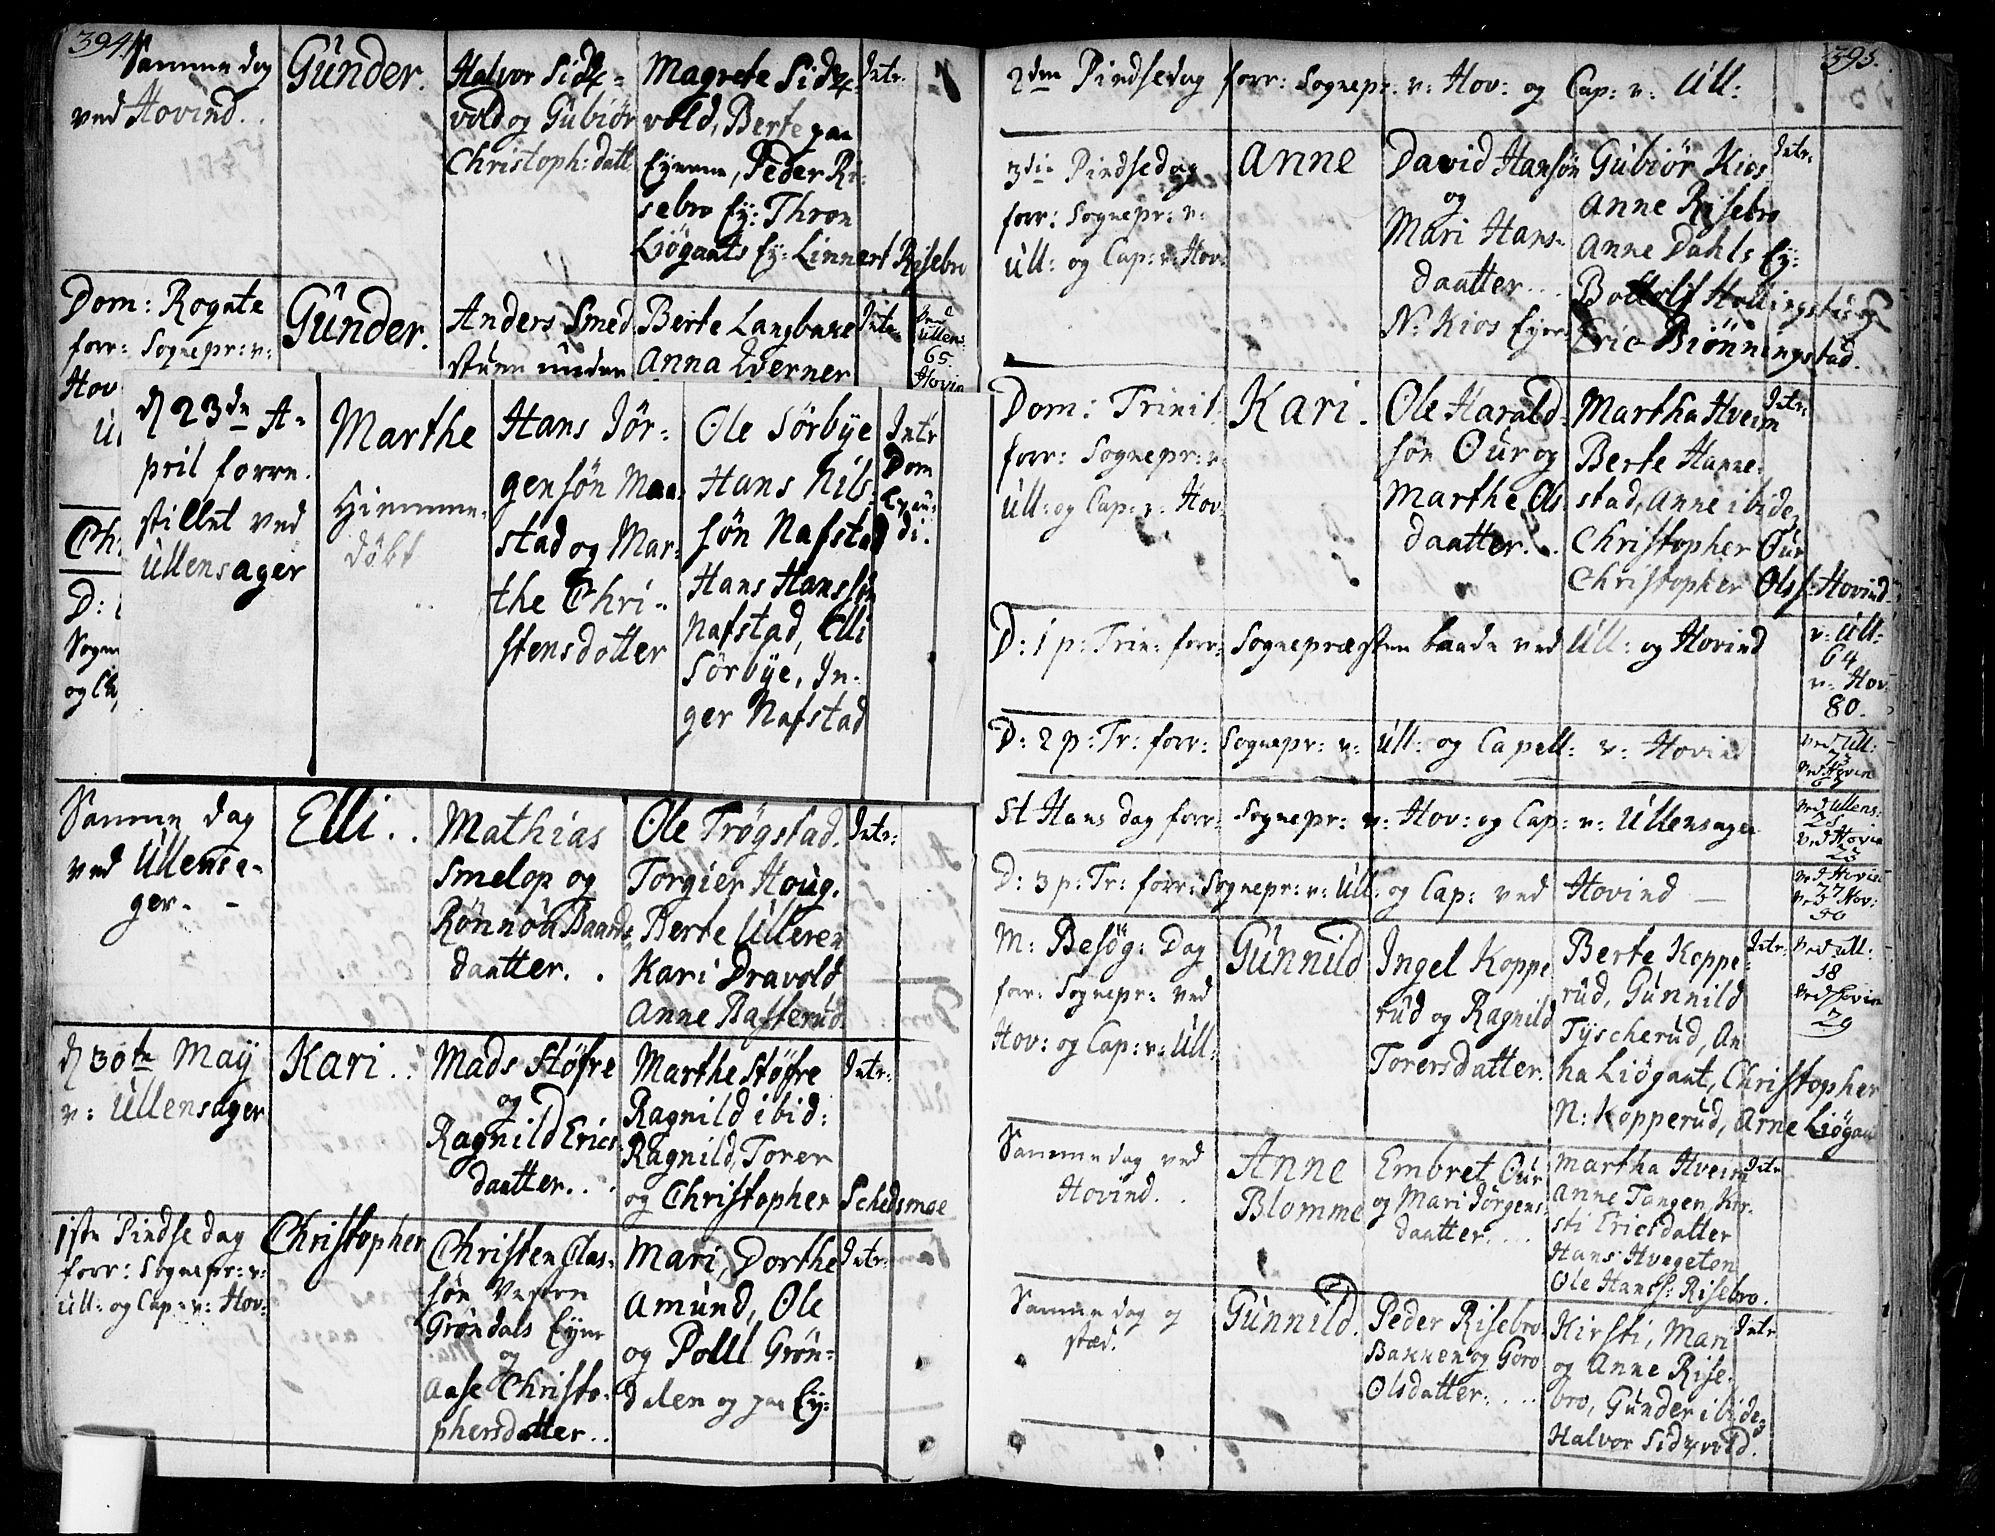 394.
Samme dag
ved Hovind.
Gúnder.
Halvor Sidz-
vold og Gúbiör
Christoph: datt
Magrete Sidz-
vold, Berte paa
Eyerne, Peder Ri-
sebro Ey: Thron
Liögaats Ey: Linnert Risebro
Intr:
Dom: Rogate
forr: Sognepr: v:
Hov
Gúnder.
Anders Smed
stuen under
Berte Langbake
Anna Werner
Intr:
Ved
Ullens:
65
Hovin
d 23de A-
pril forre-
stillet ved
Ullensager
Marthe
Hiemme-
döbt
Hans Jör-
gensön Maa-
stad og Mar-
the Chri-
stensdotter
Ole Sörbye
Hans Nils-
sön Nafstad
Hans Hanssön
Nafstad, Elli
Sörbye, In-
ger Nafstad
Intr
Dom
Exau-
di.
D:
Sogne
Samme dag
ved Ullensa-
ger.
Elli.
Mathias
Smelop og
Rönnöu Baards
daatter.
Ole Trögstad.
Torgier Houg.
Berte Ulleren
Kari Dravold
Anne Rafterud
Intr:
d 30te May
v: Ullensager
Kari.
Mads Stöfre
og
Ragnild Erics
daatter.
Marthe Stöfre
Ragnild ibid:
Ragnild, Torer
og Christopher Schedsmoe
Intr:
1ste Pindse dag
forr: Sognepr: v:
Ull: og Cap: v: Hov:
Christopher
Christen Clas-
sön Vestre
Gröndals Eyer
og
Aase Christo-
phersdatter.
Mari, Dorthe
Amúnd, Ole
og Poull Grön-
dalen og paa Ey:
Intr:
395.
2den Pindsedag forr: Sognepr: v: Hov: og Cap: v: Ull:
3die Pindsedag
forr: Sognepr: v:
Ull: og Cap: v: Hov:
Anne
David Hansön
og
Mari Hans-
daatter.
N: Kios Eyer
Gúbiör Kios
Anne Risebro
Anne Dahls Ey:
Bottolf Hellingstad og
Eric Biönningstad.
Intr:
Dom: Trinit
forr: Sognepr: v:
Ull: og Cap: v: Hov:
Kari.
Ole Harald-
sön Our og
Marthe Ols-
daatter.
Martha Hveim
Berte Hanne-
stad, Anne ibidem
Christopher Our
Christopher Ols: Hovind
Intr:
D: 1 p: Trin: forr: Sognepræsten baade ved Ull: og Hovind
v: Ull:
64
v: Hov:
80.
D: 2 p: Tr: forr: Sognepr: v: Ull: og Capell: v: Hovin
Ved Ull:
Ved Hovin
St Hans dag forr: Sognepr: v: Hov: og Cap: v: Ullensager
Ved Ullens:
28
Ved Hovin
23
D: 3 p: Tr: forr: Sognepr: v: Ull: og Cap: ved Hovind
37
50
M: Besög: Dag
forr: Sognepr: ved
Hov: og Cap: v: Ull:
Gúnnild
Ingel Koppe
rud og Ragnild
Torersdatter.
Berte Koppe-
rud, Gúnnild
Tÿscherud, An
na Liögaat, Christopher
N: Kopperud, Arne Liögaat
Intr:
Ved Ull:
18
Ved Hovin
29
Samme dag ved
Hovind.
Anne
Blomme
Embret Our
og Mari Jörgens
daatter.
Martha Hveim
Anne Tangen, Kir-
sti Ericsdatter
Hans Hvegeton
Ole Hanss: Risebro.
Intr
Samme dag og
sted.
Gúnnild.
Peder Risebro-
Bakken og Goro
Olsdatter.
Kirsti, Mari
og Anne Rise-
bro, Gúnder ibidem
Halvor Sidzvold.
Intr